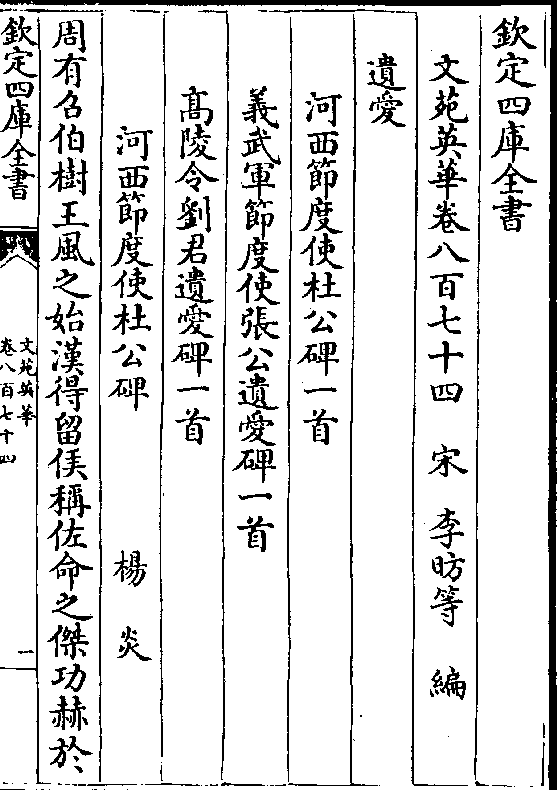 欽定四庫全書
文苑英華卷八百七十四　宋　李昉等　編
遺愛
河西節度使杜公碑一首
義武軍節度使張公遺愛碑一首
髙陵令劉君遺愛碑一首
河西節度使杜公碑　楊炎
周有召伯樹王風之始漢得留侯稱佐命之傑功赫於
欽定四庫全書
文苑英華
卷八百七十四
一